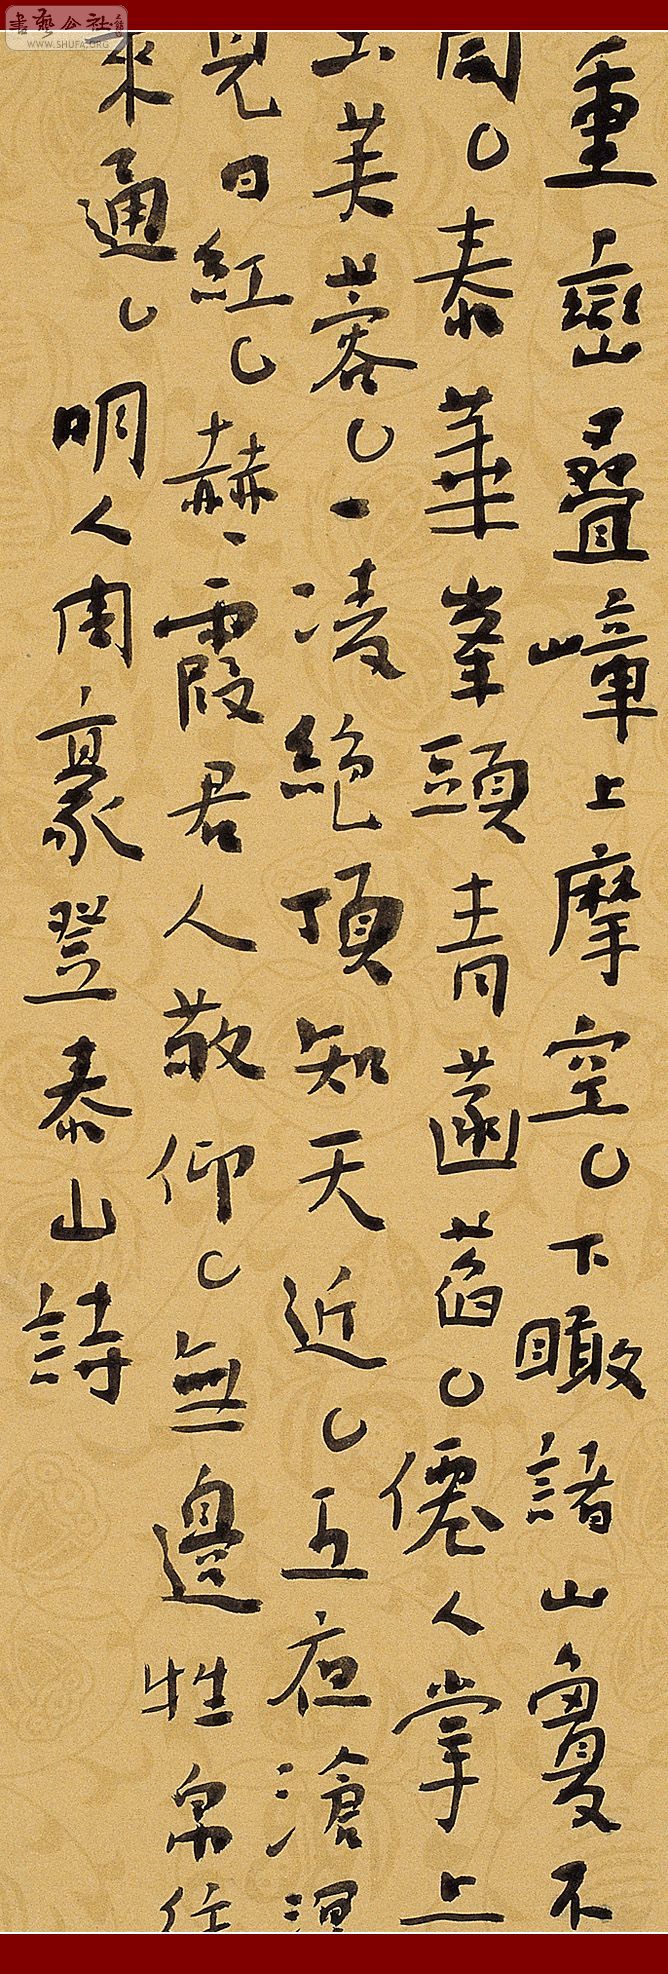 重巒疊嶂上摩空。下瞰諸山夐不
同。泰華峯頭青菡萏。僊人掌上
玉芙蓉。一凌絕頂知天近。五夜滄溟
見日紅。赫、霞君人敬仰。無邊牲帛往
來通。明人周豪登泰山詩
書藝公社
WWW.SHUFA.ORG